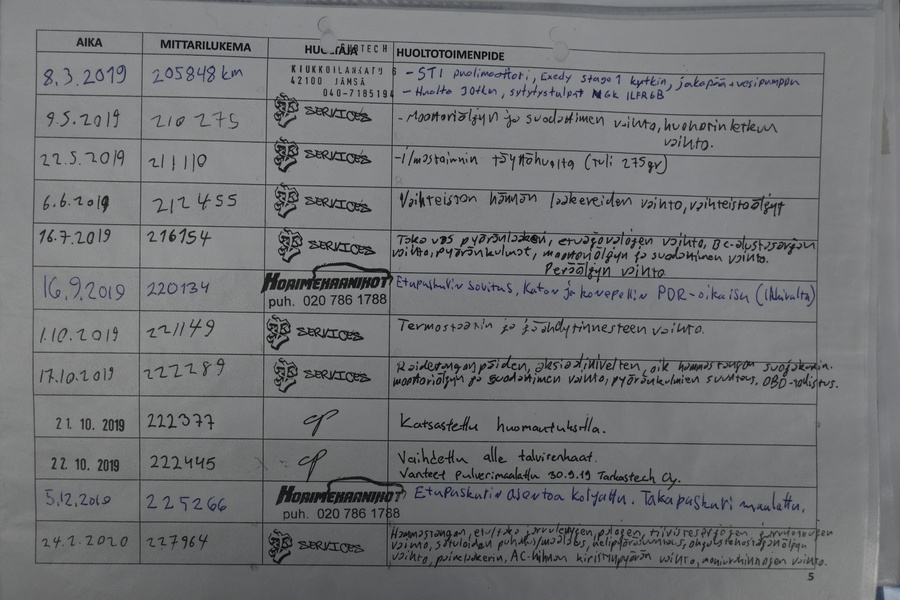 AIKA MITTARILUKEMA HUOLTAJA HUOLTOTOIMENPIDE
8.3.2019 205848 km KIUKKOILANKATU 6 - STI puolimoottori, Exedy stage 1 kytkin, jakopää + vesipumppu
42100 JÄMSÄ
040-7185194 - Huolto 30tkm, sytytystulpat NGK ILFR6B
9.5.2019 210 275 SERVICES - Moottoriöljyn ja suodattimen vaihto, huohotinletkun
vaihto.
22.5.2019 211110 SERVICES - Ilmastoinnin täyttöhuolto (tuli 275gr)
6.6.2019 212455 SERVICES Vaihteiston hännän laakereiden vaihto, vaihteistoöljyt
16.7.2019 216154 SERVICES Taka vas pyöränlaakeri, etuajovalojen vaihto,
vaihto, pyöränkulmat, moottoriöljyn ja suodattimen vaihto.
Peräöljyn vaihto
16.9.2019 220134 KORIMEKAANIKOT Etupuskurin sovitus, Katon ja konepellin PDR-oikaisu
puh. 020 786 1788
1.10.2019 221149 SERVICES Termostaatin ja jäähdytinnesteen vaihto.
17.10.2019 222289 SERVICES Raidetangonpäiden, oik hammastangon suojakumin.
moottoriöljyn ja suodattimen vaihto, pyöränkulmien suuntaus, OBD-
21. 10. 2019 222377 Katsastettu huomautuksitta.
22. 10. 2019 222445 Vaihdettu alle talvirenkaat.
Vanteet pulverimaalattu 30.9.19 Tarkastech Oy.
5.12.2019 225266 KORIMEKAANIKOT Etupuskurin asentoa korjattu. Takapuskuri maalattu.
puh. 020 786 1788
24.2.2020 227964 SERVICES Hammastangon,
vaihto,
vaihto, AC-hihnan kiristinpyörän vaihto,
5